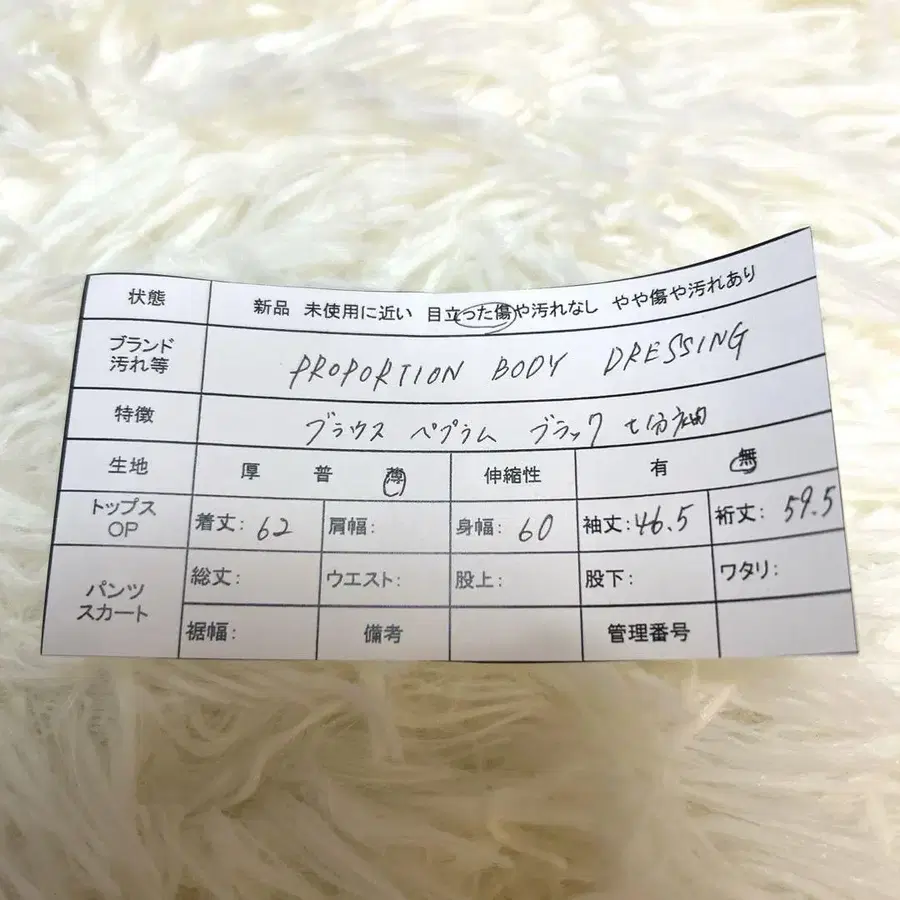 状態 新品 未使用に近い 目立った傷や汚れなし やや傷や汚れあり
ブランド
汚れ等
PROPORTION BODY DRESSING
特徴 ブラウス ペプラム ブラック 七分袖
生地 厚 普 薄 伸縮性 有 無
トップス
OP
着丈: 62 肩幅: 身幅: 60 袖丈: 46.5 裄丈: 59.5
パンツ
スカート
総丈: ウエスト: 股上: 股下: ワタリ:
裾幅: 備考 管理番号